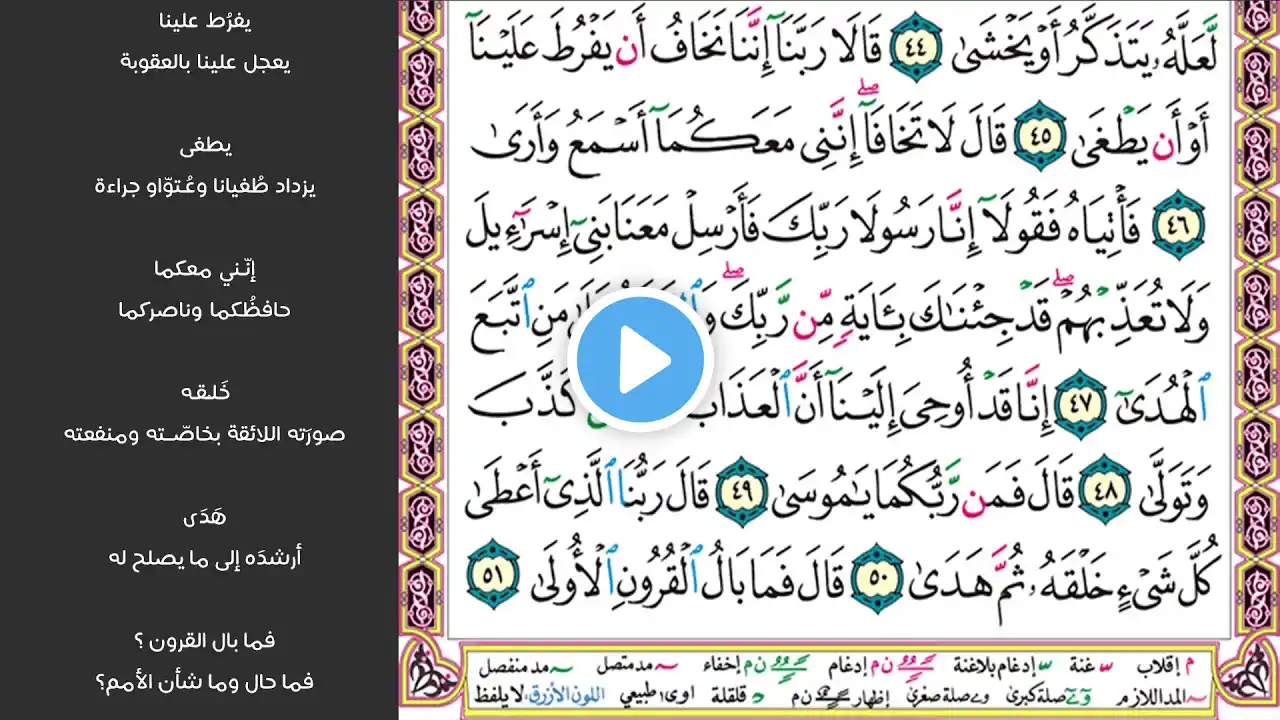 لَّعَلَّهُۥ يَتَذَكَّرُ أَوۡ يَخۡشَىٰ ٤٤ قَالَا رَبَّنَآ إِنَّنَا نَخَافُ أَن يَفۡرُطَ عَلَيۡنَآ
أَوۡ أَن يَطۡغَىٰ ٤٥ قَالَ لَا تَخَافَآۖ إِنَّنِى مَعَكُمَآ أَسۡمَعُ وَأَرَىٰ
٤٦ فَأۡتِيَاهُ فَقُولَآ إِنَّا رَسُولَا رَبِّكَ فَأَرۡسِلۡ مَعَنَا بَنِىٓ إِسۡرَٰٓءِيلَ
وَلَا تُعَذِّبۡهُمۡۖ قَدۡ جِئۡنَٰكَ بِـَٔايَةٖ مِّن رَّبِّكَۖ مَنِ ٱتَّبَعَ
ٱلۡهُدَىٰٓ ٤٧ إِنَّا قَدۡ أُوحِىَ إِلَيۡنَآ أَنَّ ٱلۡعَذَابَ كَذَّبَ
وَتَوَلَّىٰ ٤٨ قَالَ فَمَن رَّبُّكُمَا يَٰمُوسَىٰ ٤٩ قَالَ رَبُّنَا ٱلَّذِىٓ أَعۡطَىٰ
كُلَّ شَىۡءٍ خَلۡقَهُۥ ثُمَّ هَدَىٰ ٥٠ قَالَ فَمَا بَالُ ٱلۡقُرُونِ ٱلۡأُولَىٰ ٥١
م إقلاب س غنة س إدغام بلاغنة ن م إدغام ن م إخفاء ~ مد متصل ~ مد منفصل
~ المد اللازم و ے صلة كبرى و ے صلة صغرى إظهار ن م د قلقلة اوى طبيعي اللون الأزرق لا يلفظ
يفرُط علينا
يعجل علينا بالعقوبة
يطغى
يزداد طُغيانا وعُتوّاو جراءة
إنّني معكما
حافظُكما وناصركما
خَلقه
صورَته اللائقة بخاصّـته ومنفعته
هَدَى
أرشدَه إلى ما يصلح له
فما بال القرون ؟
فما حال وما شأن الأمم؟